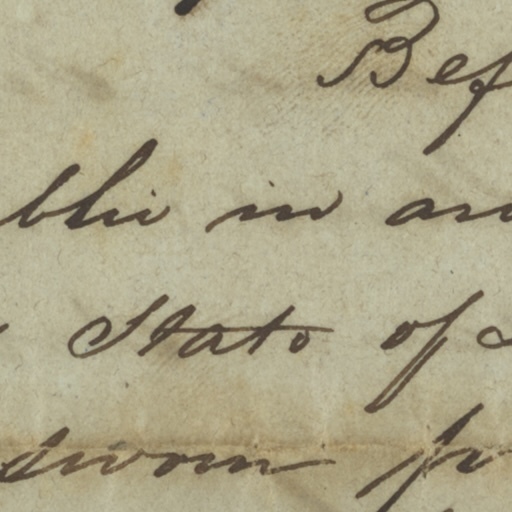 Bef
blic in an
State of
sworn